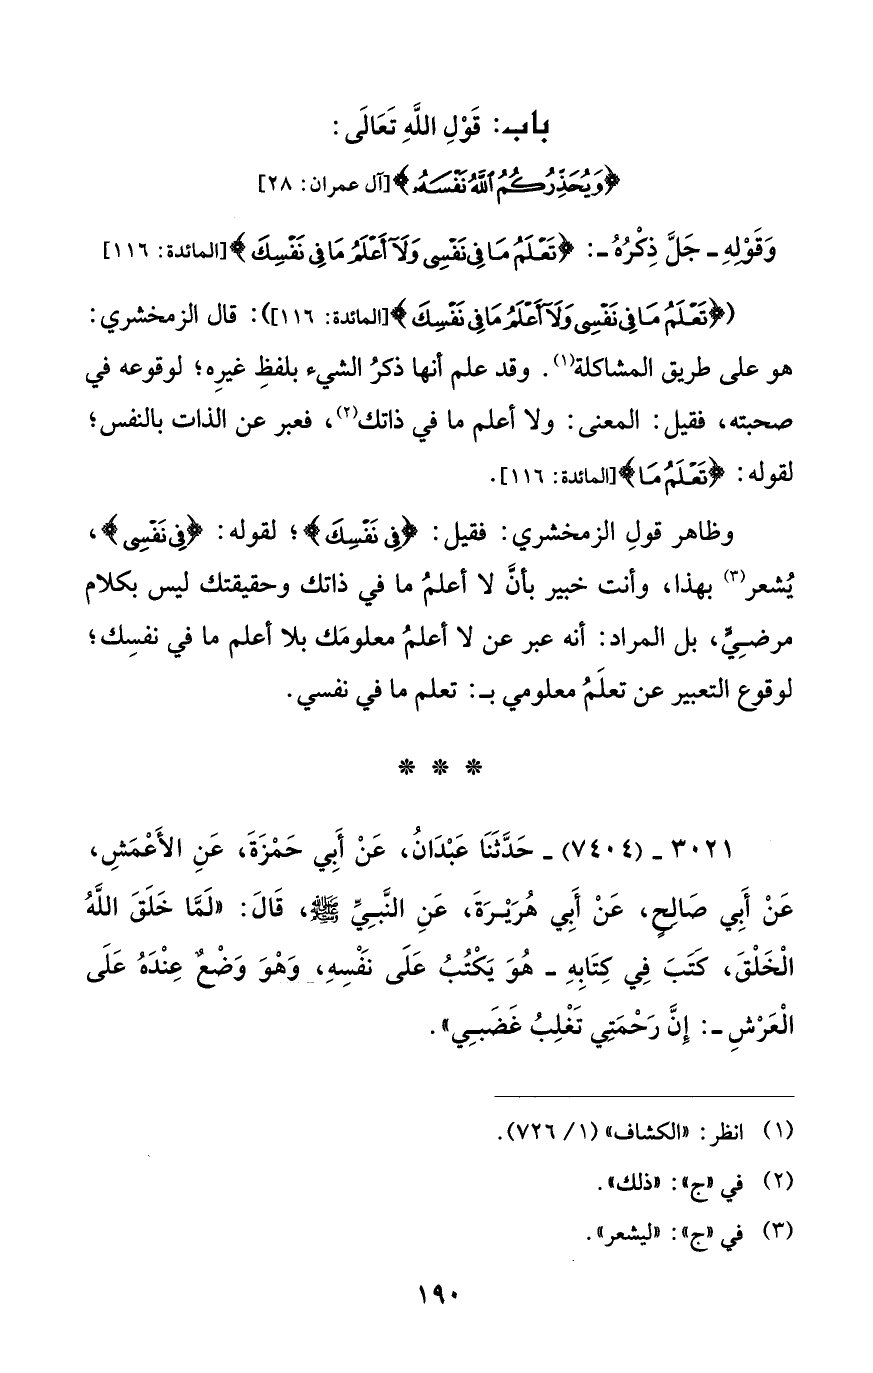 باب: قَوْلِ اللَّهِ تَعَالَى:
﴿وَيُحَذِّرُكُمُ ٱللَّهُ نَفْسَهُۥ﴾ [آل عمران: ٢٨]
وَقَوْلِهِ - جَلَّ ذِكْرُهُ -: ﴿تَعْلَمُ مَا فِى نَفْسِى وَلَآ أَعْلَمُ مَا فِى نَفْسِكَ﴾ [المائدة: ١١٦]
(﴿تَعْلَمُ مَا فِى نَفْسِى وَلَآ أَعْلَمُ مَا فِى نَفْسِكَ﴾ [المائدة: ١١٦]): قال الزمخشري:
هو على طريق المشاكلة(١). وقد علم أنها ذكرُ الشيء بلفظِ غيرِه؛ لوقوعه في
صحبته، فقيل: المعنى: ولا أعلم ما في ذاتك(٢)، فعبر عن الذات بالنفس؛
لقوله: ﴿تَعْلَمُ مَا﴾ [المائدة: ١١٦].
وظاهر قولِ الزمخشري: فقيل: ﴿فِى نَفْسِكَ﴾؛ لقوله: ﴿فِى نَفْسِى﴾،
يُشعر(٣) بهذا، وأنت خبير بأنَّ لا أعلمُ ما في ذاتك وحقيقتك ليس بكلام
مرضيٍّ، بل المراد: أنه عبر عن لا أعلمُ معلومَك بلا أعلم ما في نفسِك؛
لوقوع التعبير عن تعلَمُ معلومي بـ: تعلم ما في نفسي.
* * *
٣٠٢١ - (٧٤٠٤) - حَدَّثَنَا عَبْدَانُ، عَنْ أَبِي حَمْزَةَ، عَنِ الأَعْمَشِ،
عَنْ أَبِي صَالِحٍ، عَنْ أَبِي هُرَيْرَةَ، عَنِ النَّبِيِّ ﷺ، قَالَ: «لَمَّا خَلَقَ اللَّهُ
الْخَلْقَ، كَتَبَ فِي كِتَابِهِ - هُوَ يَكْتُبُ عَلَى نَفْسِهِ، وَهْوَ وَضْعٌ عِنْدَهُ عَلَى
الْعَرْشِ -: إِنَّ رَحْمَتِي تَغْلِبُ غَضَبِي».
(١) انظر: «الكشاف» (١/ ٧٢٦).
(٢) في «ج»: «ذلك».
(٣) في «ج»: «ليشعر».
١٩٠